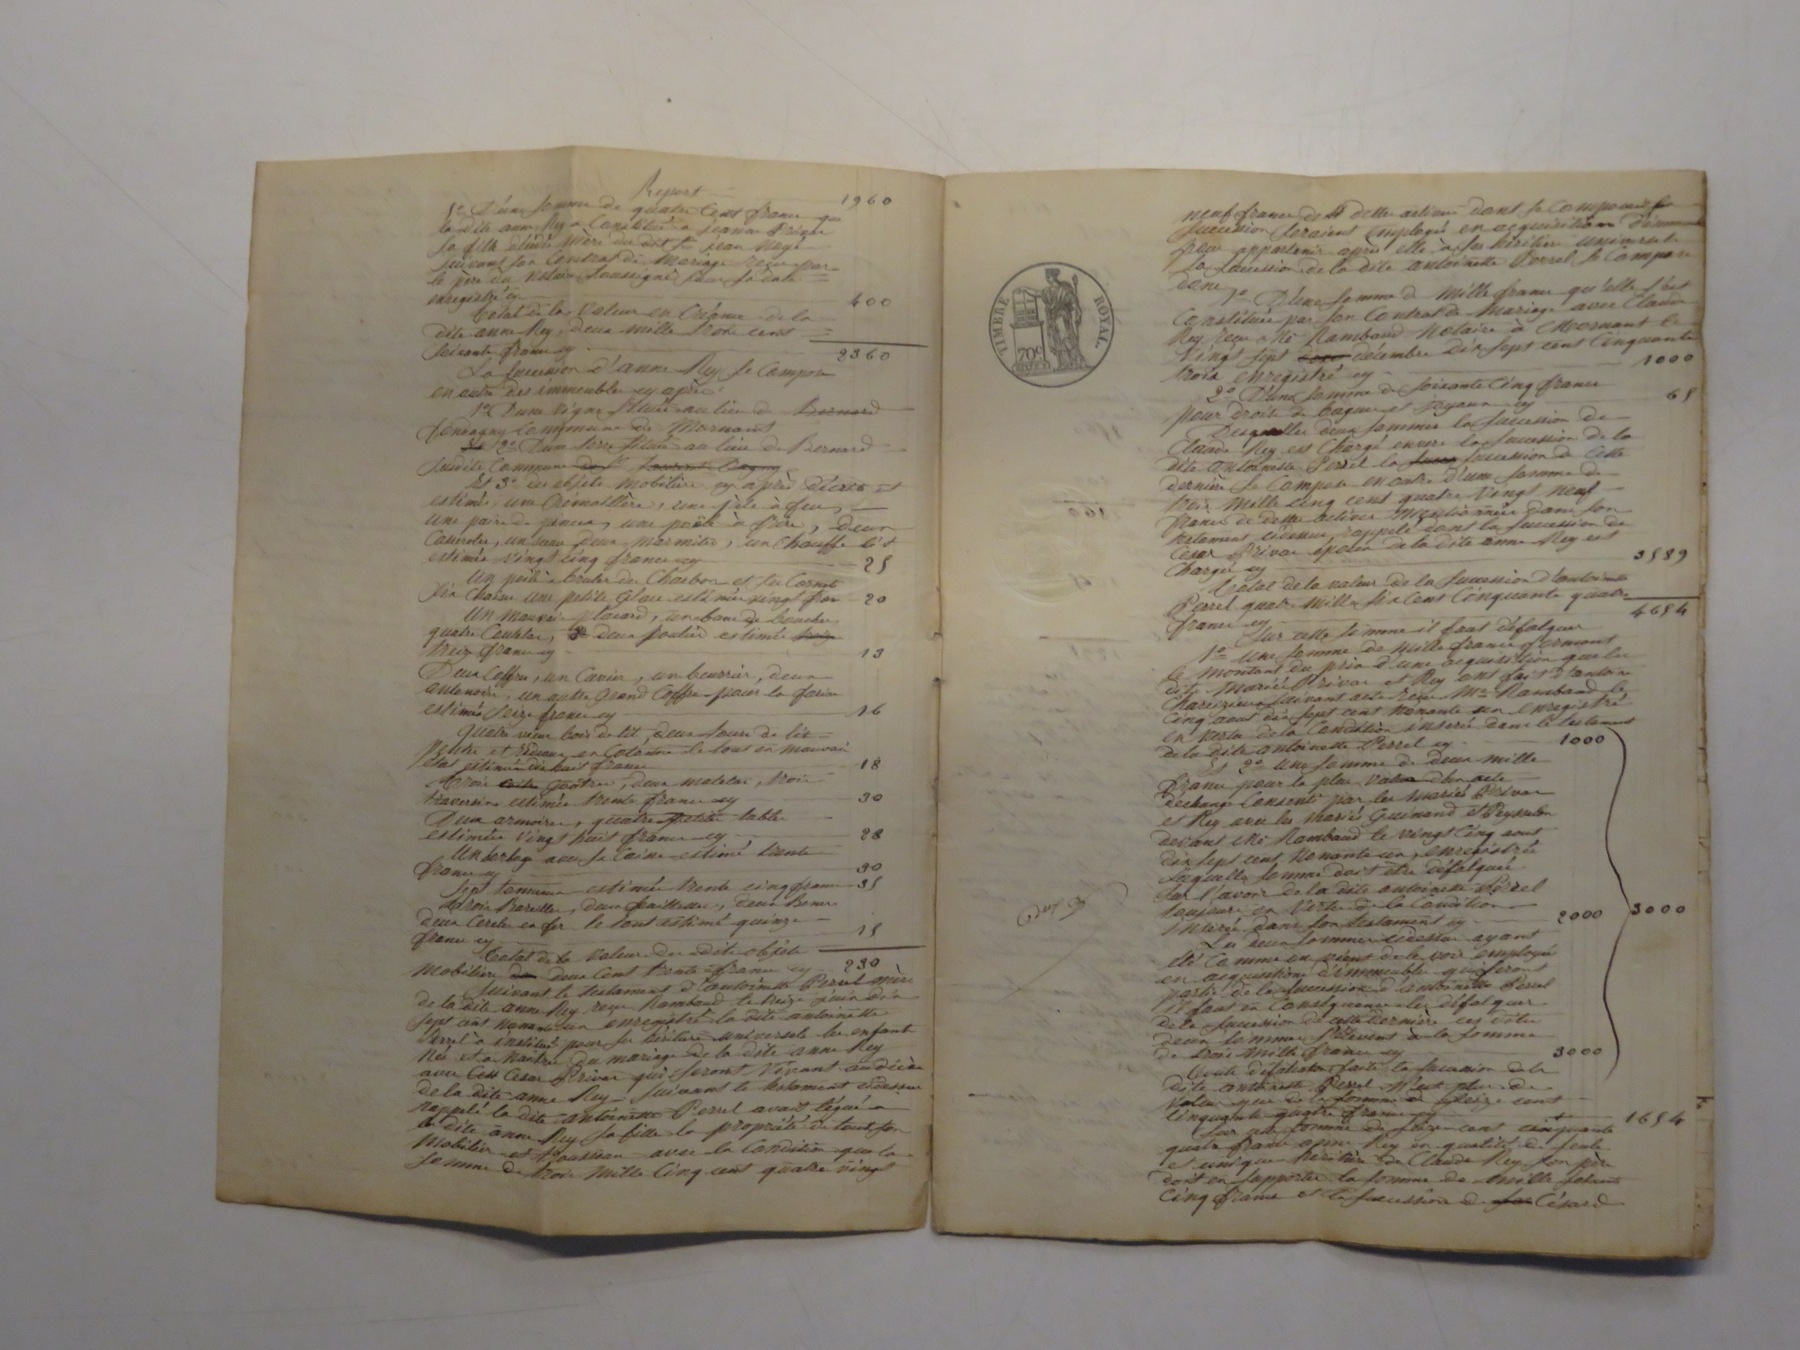 Report 1960
5° D'une somme de quatre cent francs que
la dite anne Rey a Constitué à jeanne Privar
sa fille
suivant son Contrat de Mariage reçu par
le père du Notaire soussigné sous sa date
enregistré cy 400
Total de la Valeur en Créance de la
dite anne Rey, deux mille trois cent
soixante francs cy 2360
La succession d'anne Rey se Compose
en outre des immeubles cy après
1° D'une vigne située au lieu de Bernard
Commune de Mornant
2° D'une terre située au lieu de Bernard
susdite Commune
Et 3° des objets mobiliers cy après décrits et
estimés, une Crémaillère, une pele à feu,
une paire de pinces, une poële à frire, Deux
Casseroles, un seau deux marmites, un Chauffe lit
estimés Vingt cinq francs cy 25
Un poële à bruler du Charbon et ses Cornets
six chaises une petite glace estimée vingt fran 20
Un mauvais placard, un banc de boucher
quatre Couteaux, deux estimés
treize francs cy 13
Deux Coffres, un Cuvier, un beurrier, deux
, un autre grand Coffre pour la farine
estimés seize francs cy 16
Quatre vieux bois de lit, deux tours de lit
et rideaux en Cotonne le tout en mauvais
état estimés dix huit francs 18
Trois deux matelas, trois
traversins estimés trente francs cy 30
Deux armoires, quatre petites tables
estimées vingt huit francs cy 28
Un horloge avec sa Caisse estimé trente
francs cy 30
Sept tonneaux estimés trente cinq francs 35
Trois Bareilles, deux feuillettes, deux Bennes
deux Cercles en fer le tout estimé quinze
francs cy 15
Total de la valeur des dits objets
Mobiliers deux Cent trente francs cy 230
Suivant le testament d'antoinette Perrel mère
de la dite anne Rey reçu Rambaud le treize juin dix
sept cent nonante un enregistré la dite antoinette
Perrel a institué pour ses héritiers universels les enfants
Nés et à Naitre du mariage de la dite anne Rey
avec César Privar qui seront Vivant au décès
de la dite anne Rey. Suivant le testament cidessus
rappelé la dite antoinette Perrel avait légué à
la dite anne Rey sa fille la propriété de tout son
Mobilier et trousseau avec la Condition que la
somme de trois mille Cinq cent quatre vingt
TIMBRE ROYAL
70c
neuf francs de dettes actives dont se Compose sa
succession seraient Employés en acquisition d'immeu
pour appartenir après elle à ses héritiers universels
La succession de la dite antoinette Perrel se Compose
donc
1° D'une somme de Mille francs qu'elle s'est
Constituée par son Contrat de Mariage avec Claude
Rey reçu Me Rambaud Notaire à Mornant le
Vingt sept décembre dix sept cent Cinquante
trois enregistré cy 1000
2° D'une somme de soixante Cinq francs
pour droits de bagues et joyaux cy 65
Desquelles deux sommes la succession de
Claude Rey est Chargé envers la succession de la
dite antoinette Perrel la succession de Cette
dernière se Compose en outre d'une somme de
trois Mille Cinq cent quatre Vingt neuf
francs de dettes actives Mentionnées dans son
testament cidessus rappelé dont la succession de
César Privar époux de la dite anne Rey est
Chargée cy 3589
Total de la valeur de la succession d'antoinette
Perrel quatre Mille six cent Cinquante quatre
francs cy 4654
Sur cette somme il faut défalquer
1° Une somme de Mille francs formant
le Montant du prix d'une acquisition que les
dits Mariés Privar et Rey ont fait d'antoine
suivant acte reçu Me Rambaud le
Cinq aout dix sept cent nonante un enregistré
en vertu de la Condition insérée dans le testament
de la dite antoinette Perrel cy 1000
Et 2° une somme de deux mille
francs pour la plus value d'un acte
déchange Consenti par les Mariés Privar
et Rey avec les Mariés Guinand et Peysselon
devant Me Rambaud le vingt Cinq aout
dix sept cent Nonante un, enregistré
Laquelle somme doit être défalquée
sur l'avoir de la dite antoinette Perrel
toujours en Vertu de la Condition
insérée dans son testament cy 2000 3000
Les deux sommes cidessus ayant
été Comme on vient de le voir employées
en acquisitions d'immeubles qui feront
partie de la succession d'antoinette Perrel
il faut en Conséquence les défalquer
de la succession de cette Dernière ces dites
deux sommes s'élevent à la somme
de trois Mille francs cy 3000
Toute défalcation faite la succession de la
dite antoinette Perrel N'est plus de
Valeur que de la somme de seize cent
Cinquante quatre francs cy 1654
Sur cette somme de seize cent cinquante
quatre francs anne Rey en qualité de seule
et unique héritière de Claude Rey son père
doit en supporter la somme de Mille soixante
Cinq francs et la succession de César